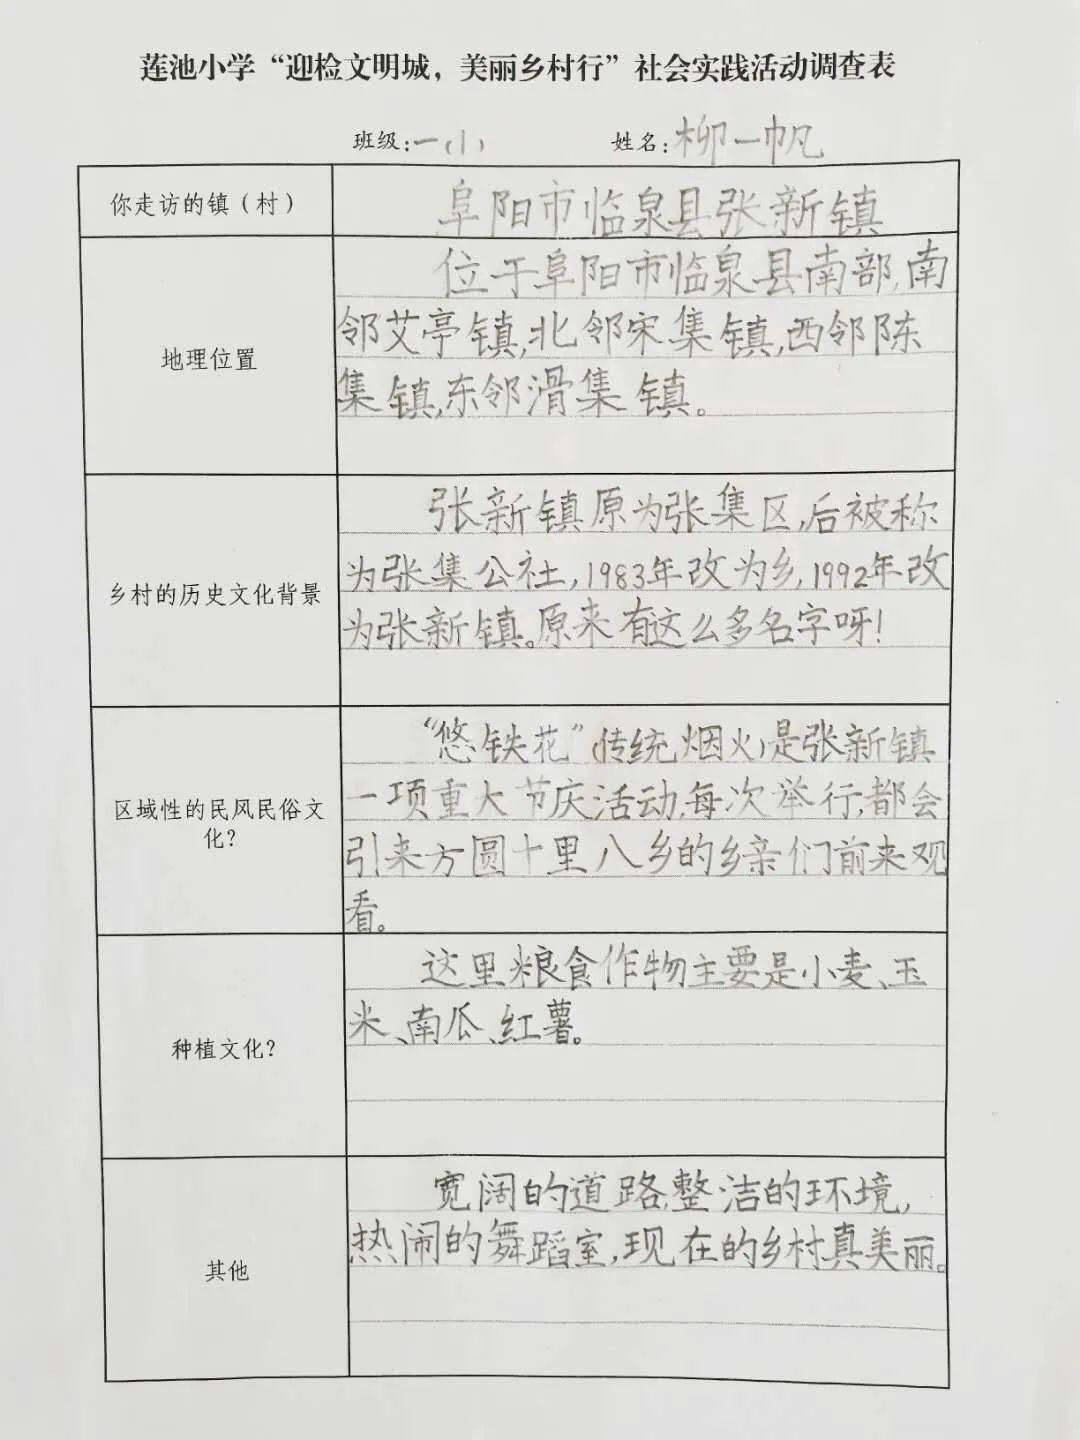 莲池小学“迎检文明城，美丽乡村行”社会实践活动调查表
班级：一(1) 姓名：柳一帆
你走访的镇（村）
阜阳市临泉县张新镇
地理位置
位于阜阳市临泉县南部，南
邻艾亭镇，北邻宋集镇，西邻陈
集镇，东邻滑集镇。
乡村的历史文化背景
张新镇原为张集区，后被称
为张集公社，1983年改为乡，1992年改
为张新镇。原来有这么多名字呀！
区域性的民风民俗文
化？
“悠铁花”(传统烟火)是张新镇
一项重大节庆活动，每次举行，都会
引来方圆十里八乡的乡亲们前来观
看。
种植文化？
这里粮食作物主要是小麦、玉
米、南瓜、红薯。
其他
宽阔的道路，整洁的环境，
热闹的舞蹈室，现在的乡村真美丽。